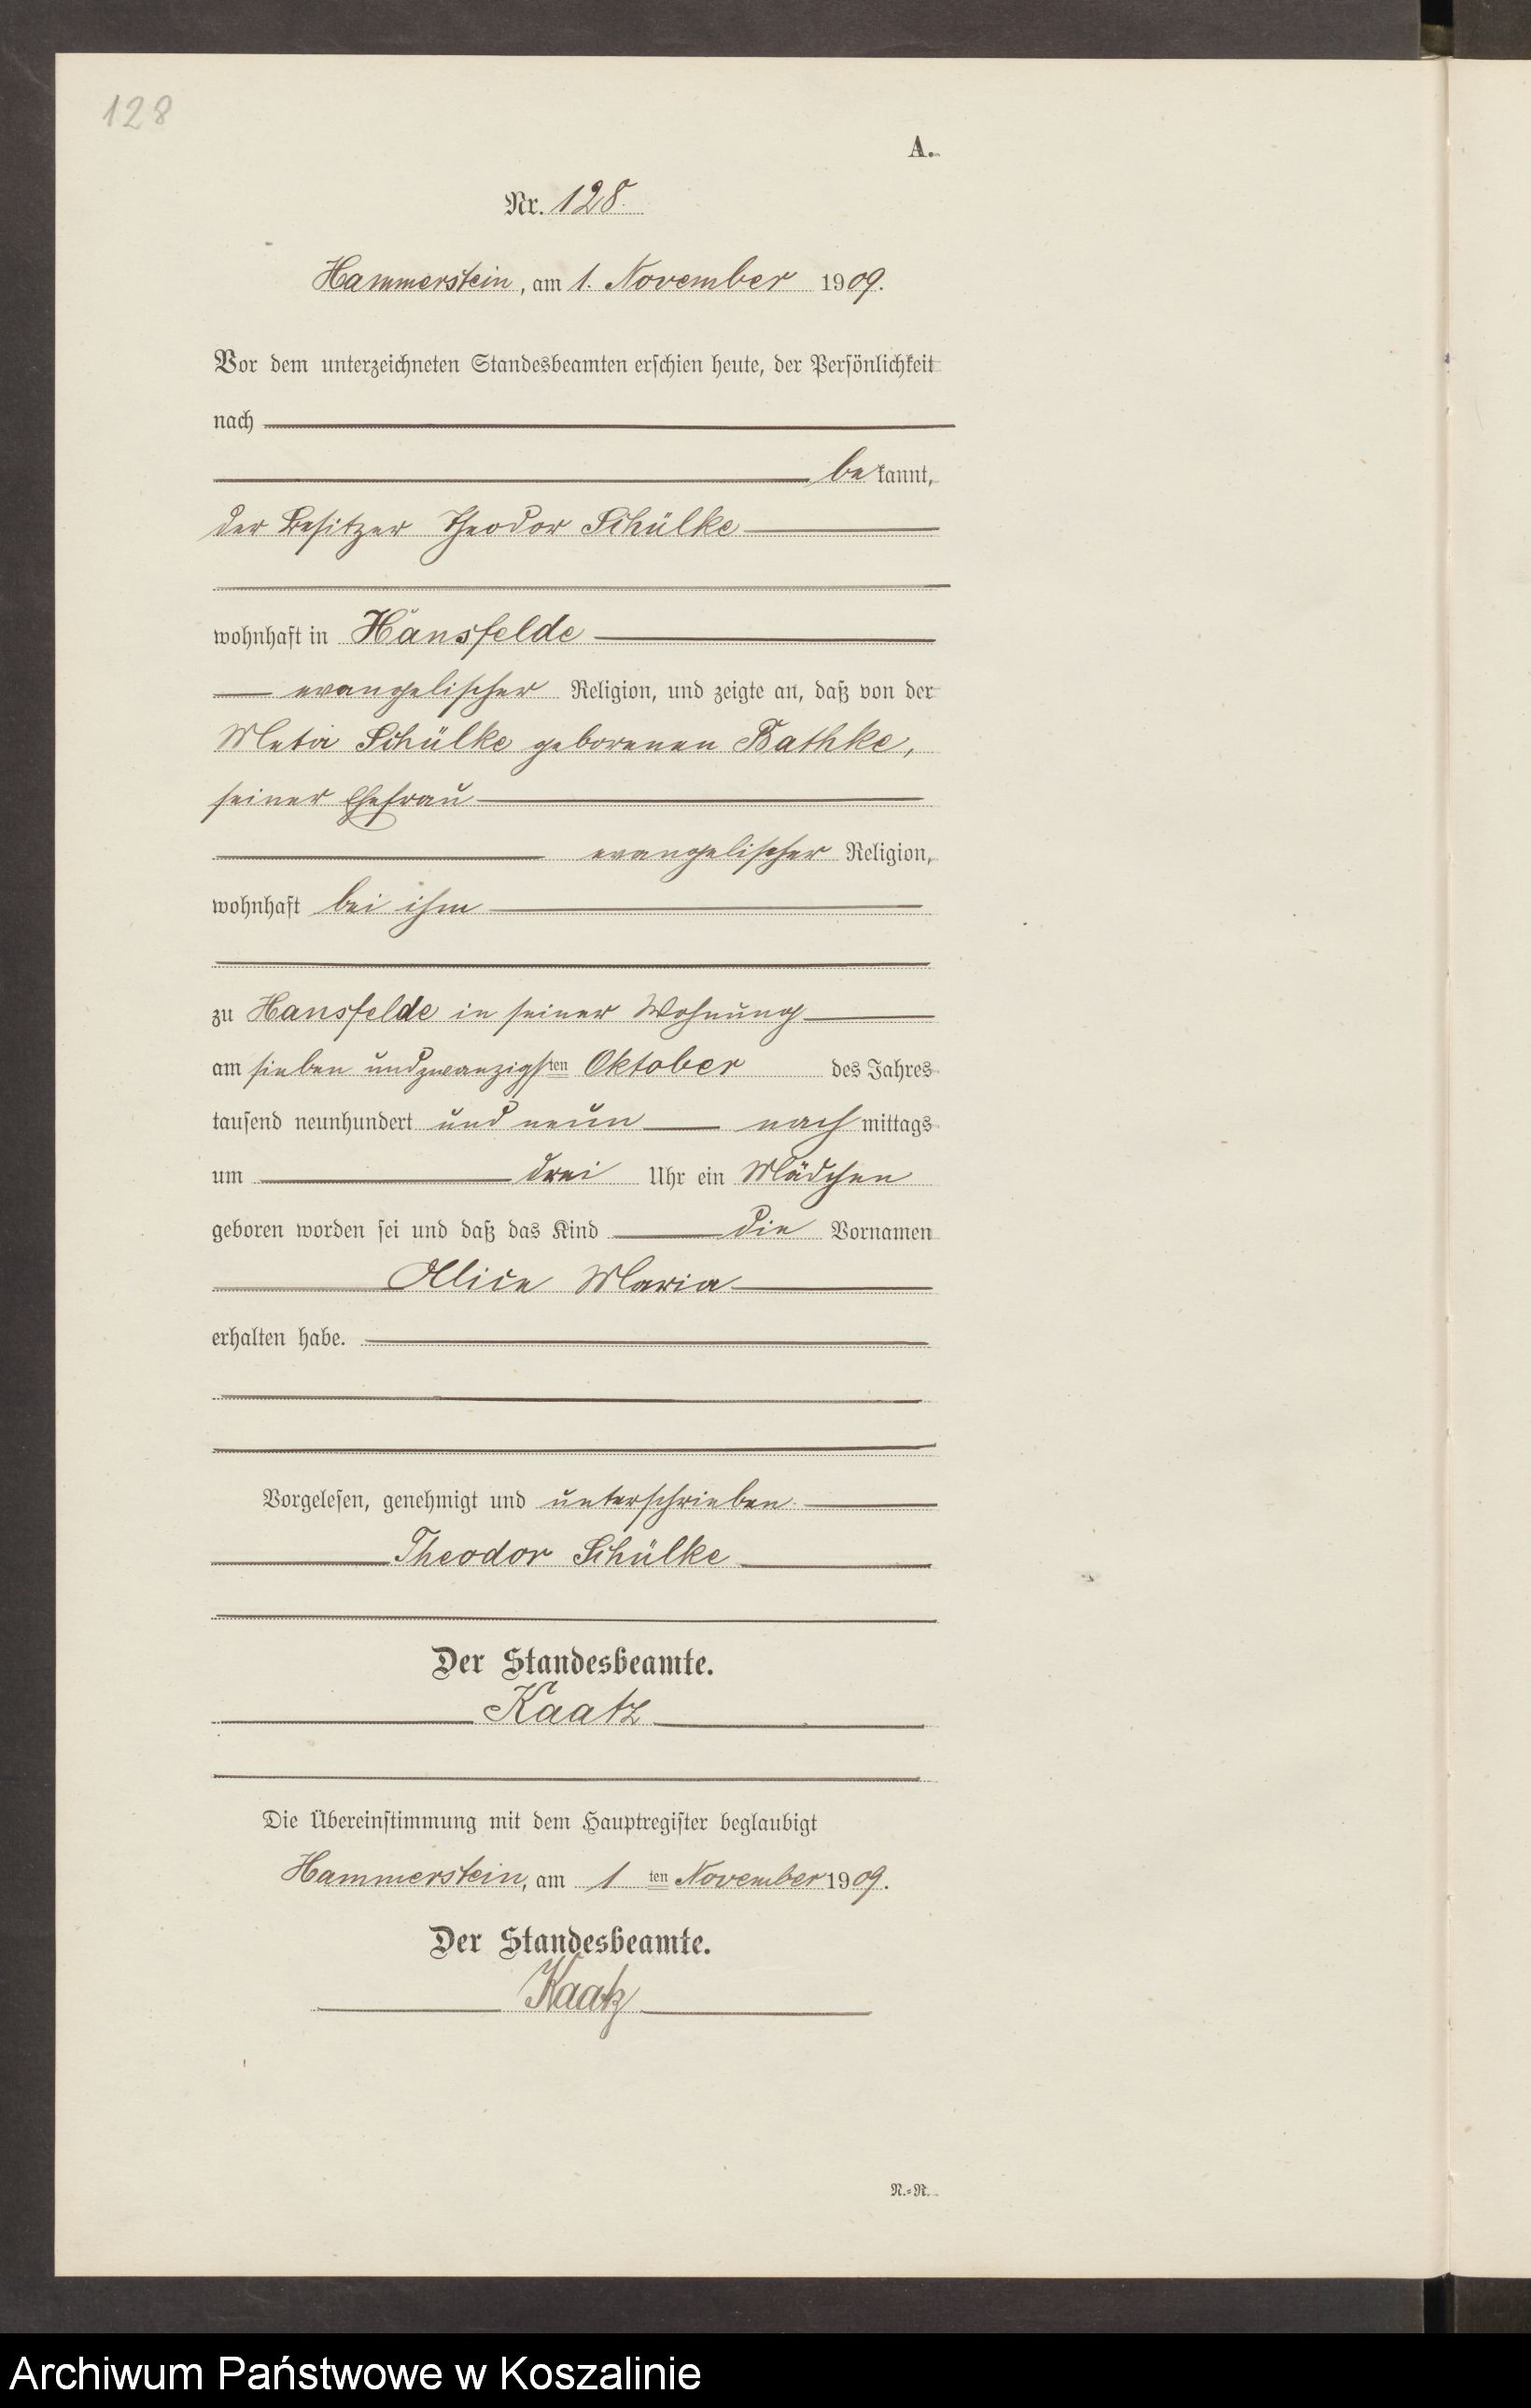 128
A.
Nr. 128.
Hammerstein, am 1. November 1909.
Vor dem unterzeichneten Standesbeamten erschien heute, der Persönlichkeit
nach
bekannt,
der Besitzer Theodor Schülke
wohnhaft in Hansfelde
evangelischer Religion, und zeigte an, daß von der
Meta Schülke geborenen Bathke,
seiner Ehefrau
evangelischer Religion,
wohnhaft bei ihm
zu Hansfelde in seiner Wohnung
am sieben undzwanzigsten Oktober des Jahres
tausend neunhundert und neun nachmittags
um drei Uhr ein Mädchen
geboren worden sei und daß das Kind die Vornamen
Alice Maria
erhalten habe.
Vorgelesen, genehmigt und unterschrieben
Theodor Schülke
Der Standesbeamte.
Kaatz
Die Übereinstimmung mit dem Hauptregister beglaubigt
Hammerstein, am 1ten November 1909.
Der Standesbeamte.
Kaatz
N.=R.
Archiwum Państwowe w Koszalinie